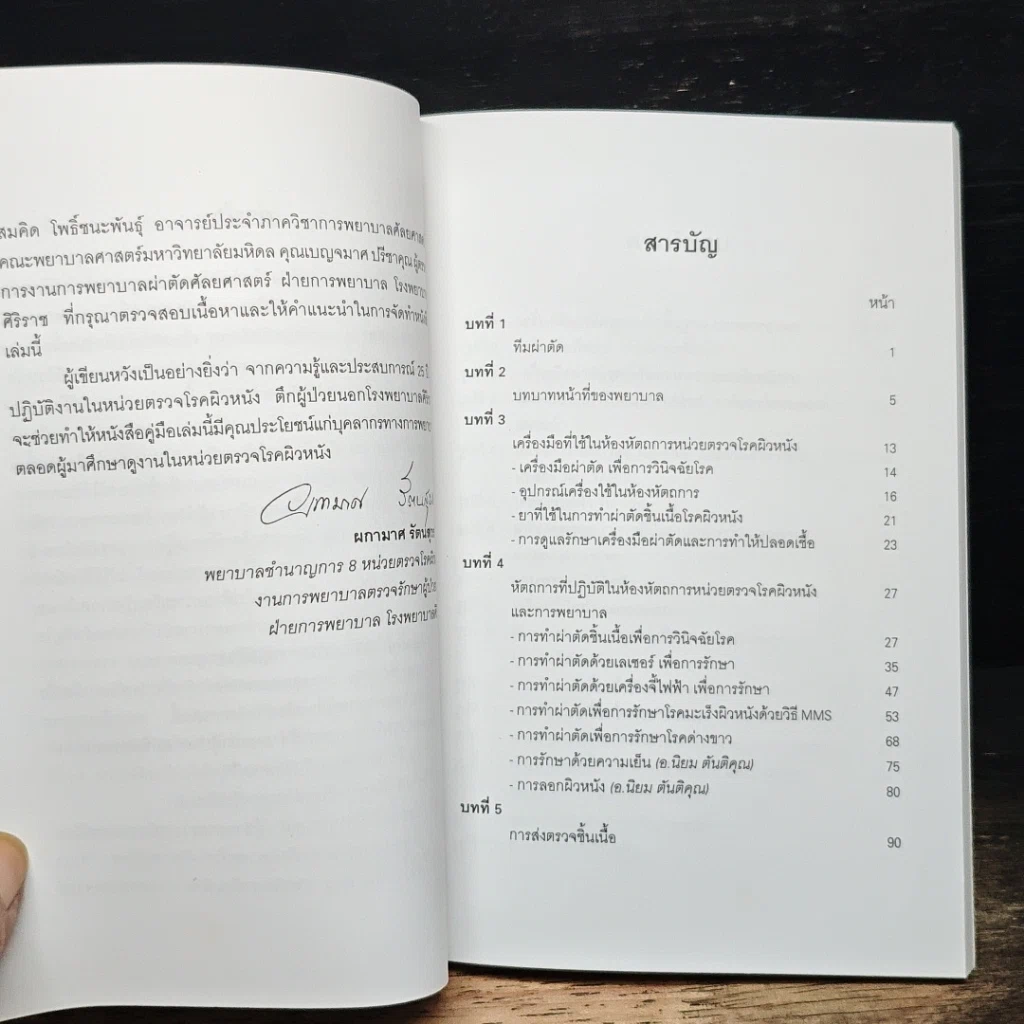 สมคิด โพธิ์ชนะพันธุ์ อาจารย์ประจำภาควิชาการพยาบาลศัลยศาสตร์
คณะพยาบาลศาสตร์มหาวิทยาลัยมหิดล คุณเบญจมาศ ปรีชาคุณ
การงานการพยาบาลผ่าตัดศัลยศาสตร์ ฝ่ายการพยาบาล โรงพยาบา
ศิริราช ที่กรุณาตรวจสอบเนื้อหาและให้คำแนะนำในการจัดทำหนัง
เล่มนี้
ผู้เขียนหวังเป็นอย่างยิ่งว่า จากความรู้และประสบการณ์ 25 ปี
ปฏิบัติงานในหน่วยตรวจโรคผิวหนัง ตึกผู้ป่วยนอกโรงพยาบาลศิ
จะช่วยทำให้หนังสือคู่มือเล่มนี้มีคุณประโยชน์แก่บุคลากรทางการพยา
ตลอดผู้มาศึกษาดูงานในหน่วยตรวจโรคผิวหนัง
ผกามาศ รัตน
พยาบาลชำนาญการ 8 หน่วยตรวจโรคผิว
งานการพยาบาลตรวจรักษาผู้ป่ว
ฝ่ายการพยาบาล โรงพยาบาลศิ
สารบัญ
หน้า
บทที่ 1
ทีมผ่าตัด 1
บทที่ 2
บทบาทหน้าที่ของพยาบาล 5
บทที่ 3
เครื่องมือที่ใช้ในห้องหัตถการหน่วยตรวจโรคผิวหนัง 13
- เครื่องมือผ่าตัด เพื่อการวินิจฉัยโรค 14
- อุปกรณ์เครื่องใช้ในห้องหัตถการ 16
- ยาที่ใช้ในการทำผ่าตัดชิ้นเนื้อโรคผิวหนัง 21
- การดูแลรักษาเครื่องมือผ่าตัดและการทำให้ปลอดเชื้อ 23
บทที่ 4
หัตถการที่ปฏิบัติในห้องหัตถการหน่วยตรวจโรคผิวหนัง 27
และการพยาบาล
- การทำผ่าตัดชิ้นเนื้อเพื่อการวินิจฉัยโรค 27
- การทำผ่าตัดด้วยเลเซอร์ เพื่อการรักษา 35
- การทำผ่าตัดด้วยเครื่องจี้ไฟฟ้า เพื่อการรักษา 47
- การทำผ่าตัดเพื่อการรักษาโรคมะเร็งผิวหนังด้วยวิธี MMS 53
- การทำผ่าตัดเพื่อการรักษาโรคด่างขาว 68
- การรักษาด้วยความเย็น (อ.นิยม ตันติคุณ) 75
- การลอกผิวหนัง (อ.นิยม ตันติคุณ) 80
บทที่ 5
การส่งตรวจชิ้นเนื้อ 90